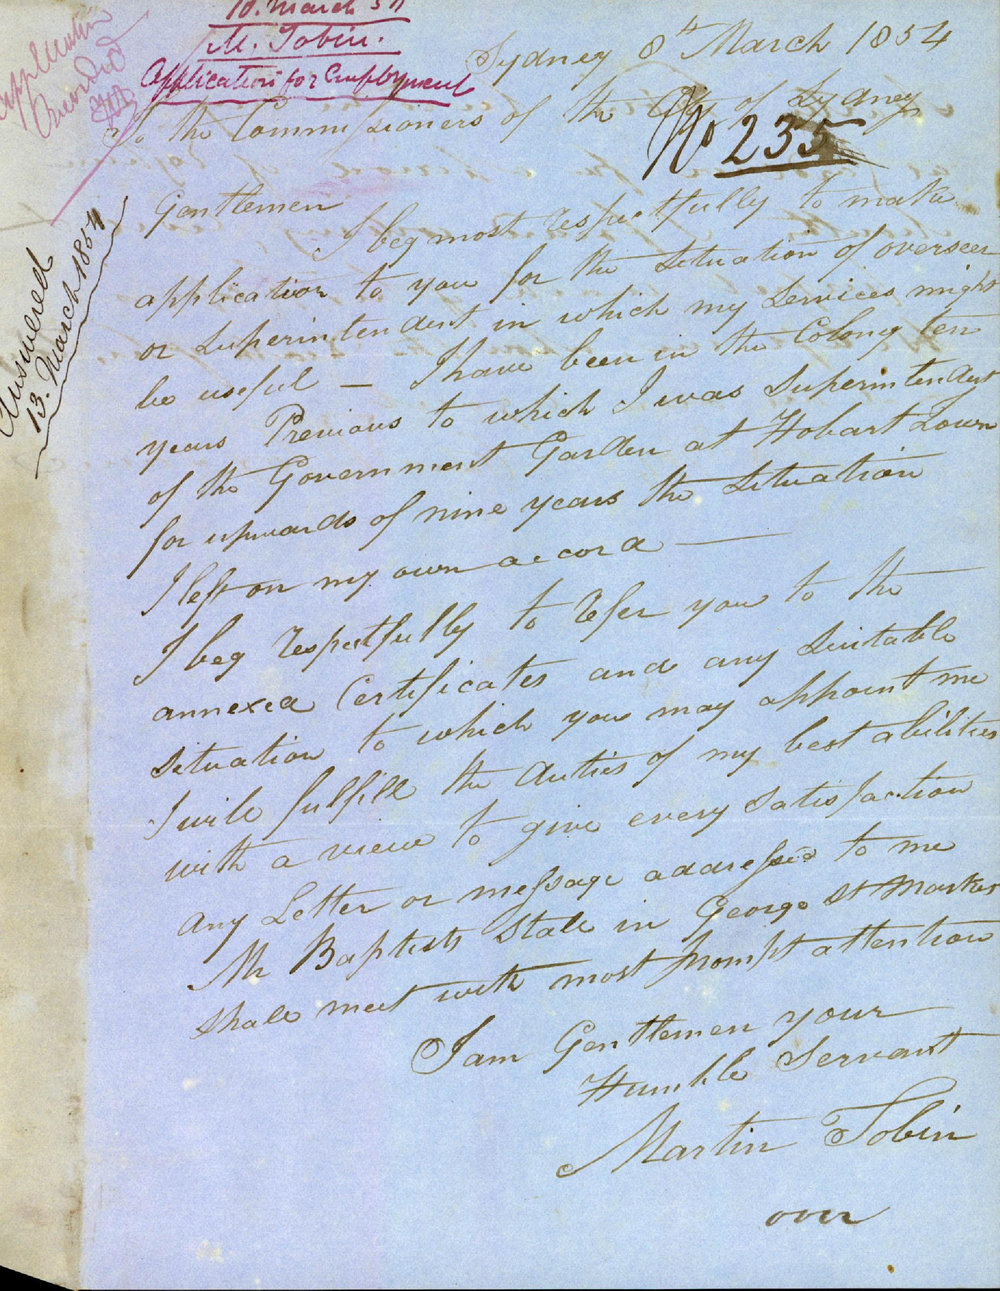 10. March 54
M. Tobin.
Application for Employment
Application
Recorded
Answered
13. March 1854
Sydney 8th March 1854
To the Commissioners of the City of Sydney
No 235
Gentlemen
I beg most respectfully to make
application to you for the Situation of overseer
or Superintendent in which my Services might
be useful — I have been in the Colony ten
years Previous to which I was Superintendent
of the Government Garden at Hobart Town
for upwards of nine years the Situation
I left on my own accord —
I beg respectfully to refer you to the
annexed Certificates and any Suitable
Situation to which you may appoint me
I will fulfill the duties of my best abilities
with a view to give every Satisfaction
any Letter or message addressed to me
Mr Baptists Stall in George St Market
Shall meet with most prompt attention
I am Gentlemen your
Humble Servant
Martin Tobin
over